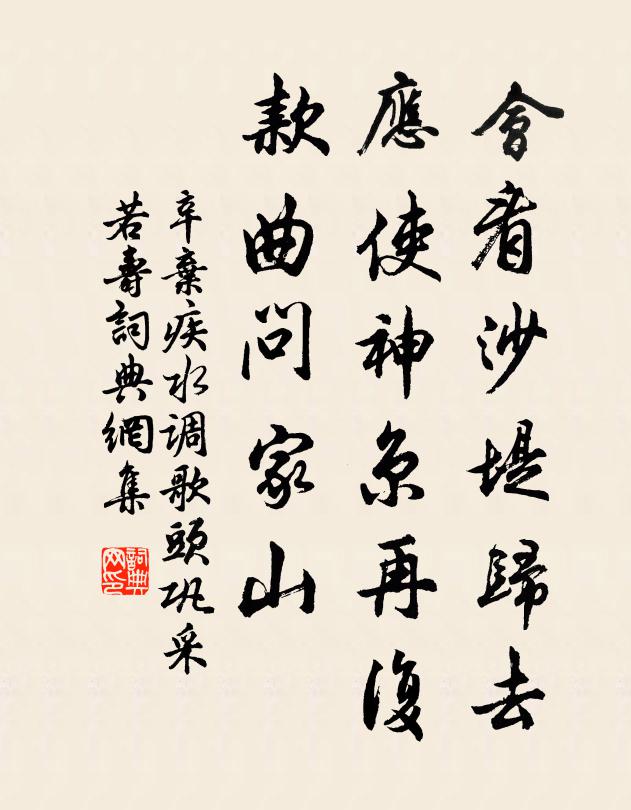 會看沙堤歸去
應使神京再復
款曲問家山
辛棄疾水调歌頭巩采
若壽詞典網集
詞典
网印